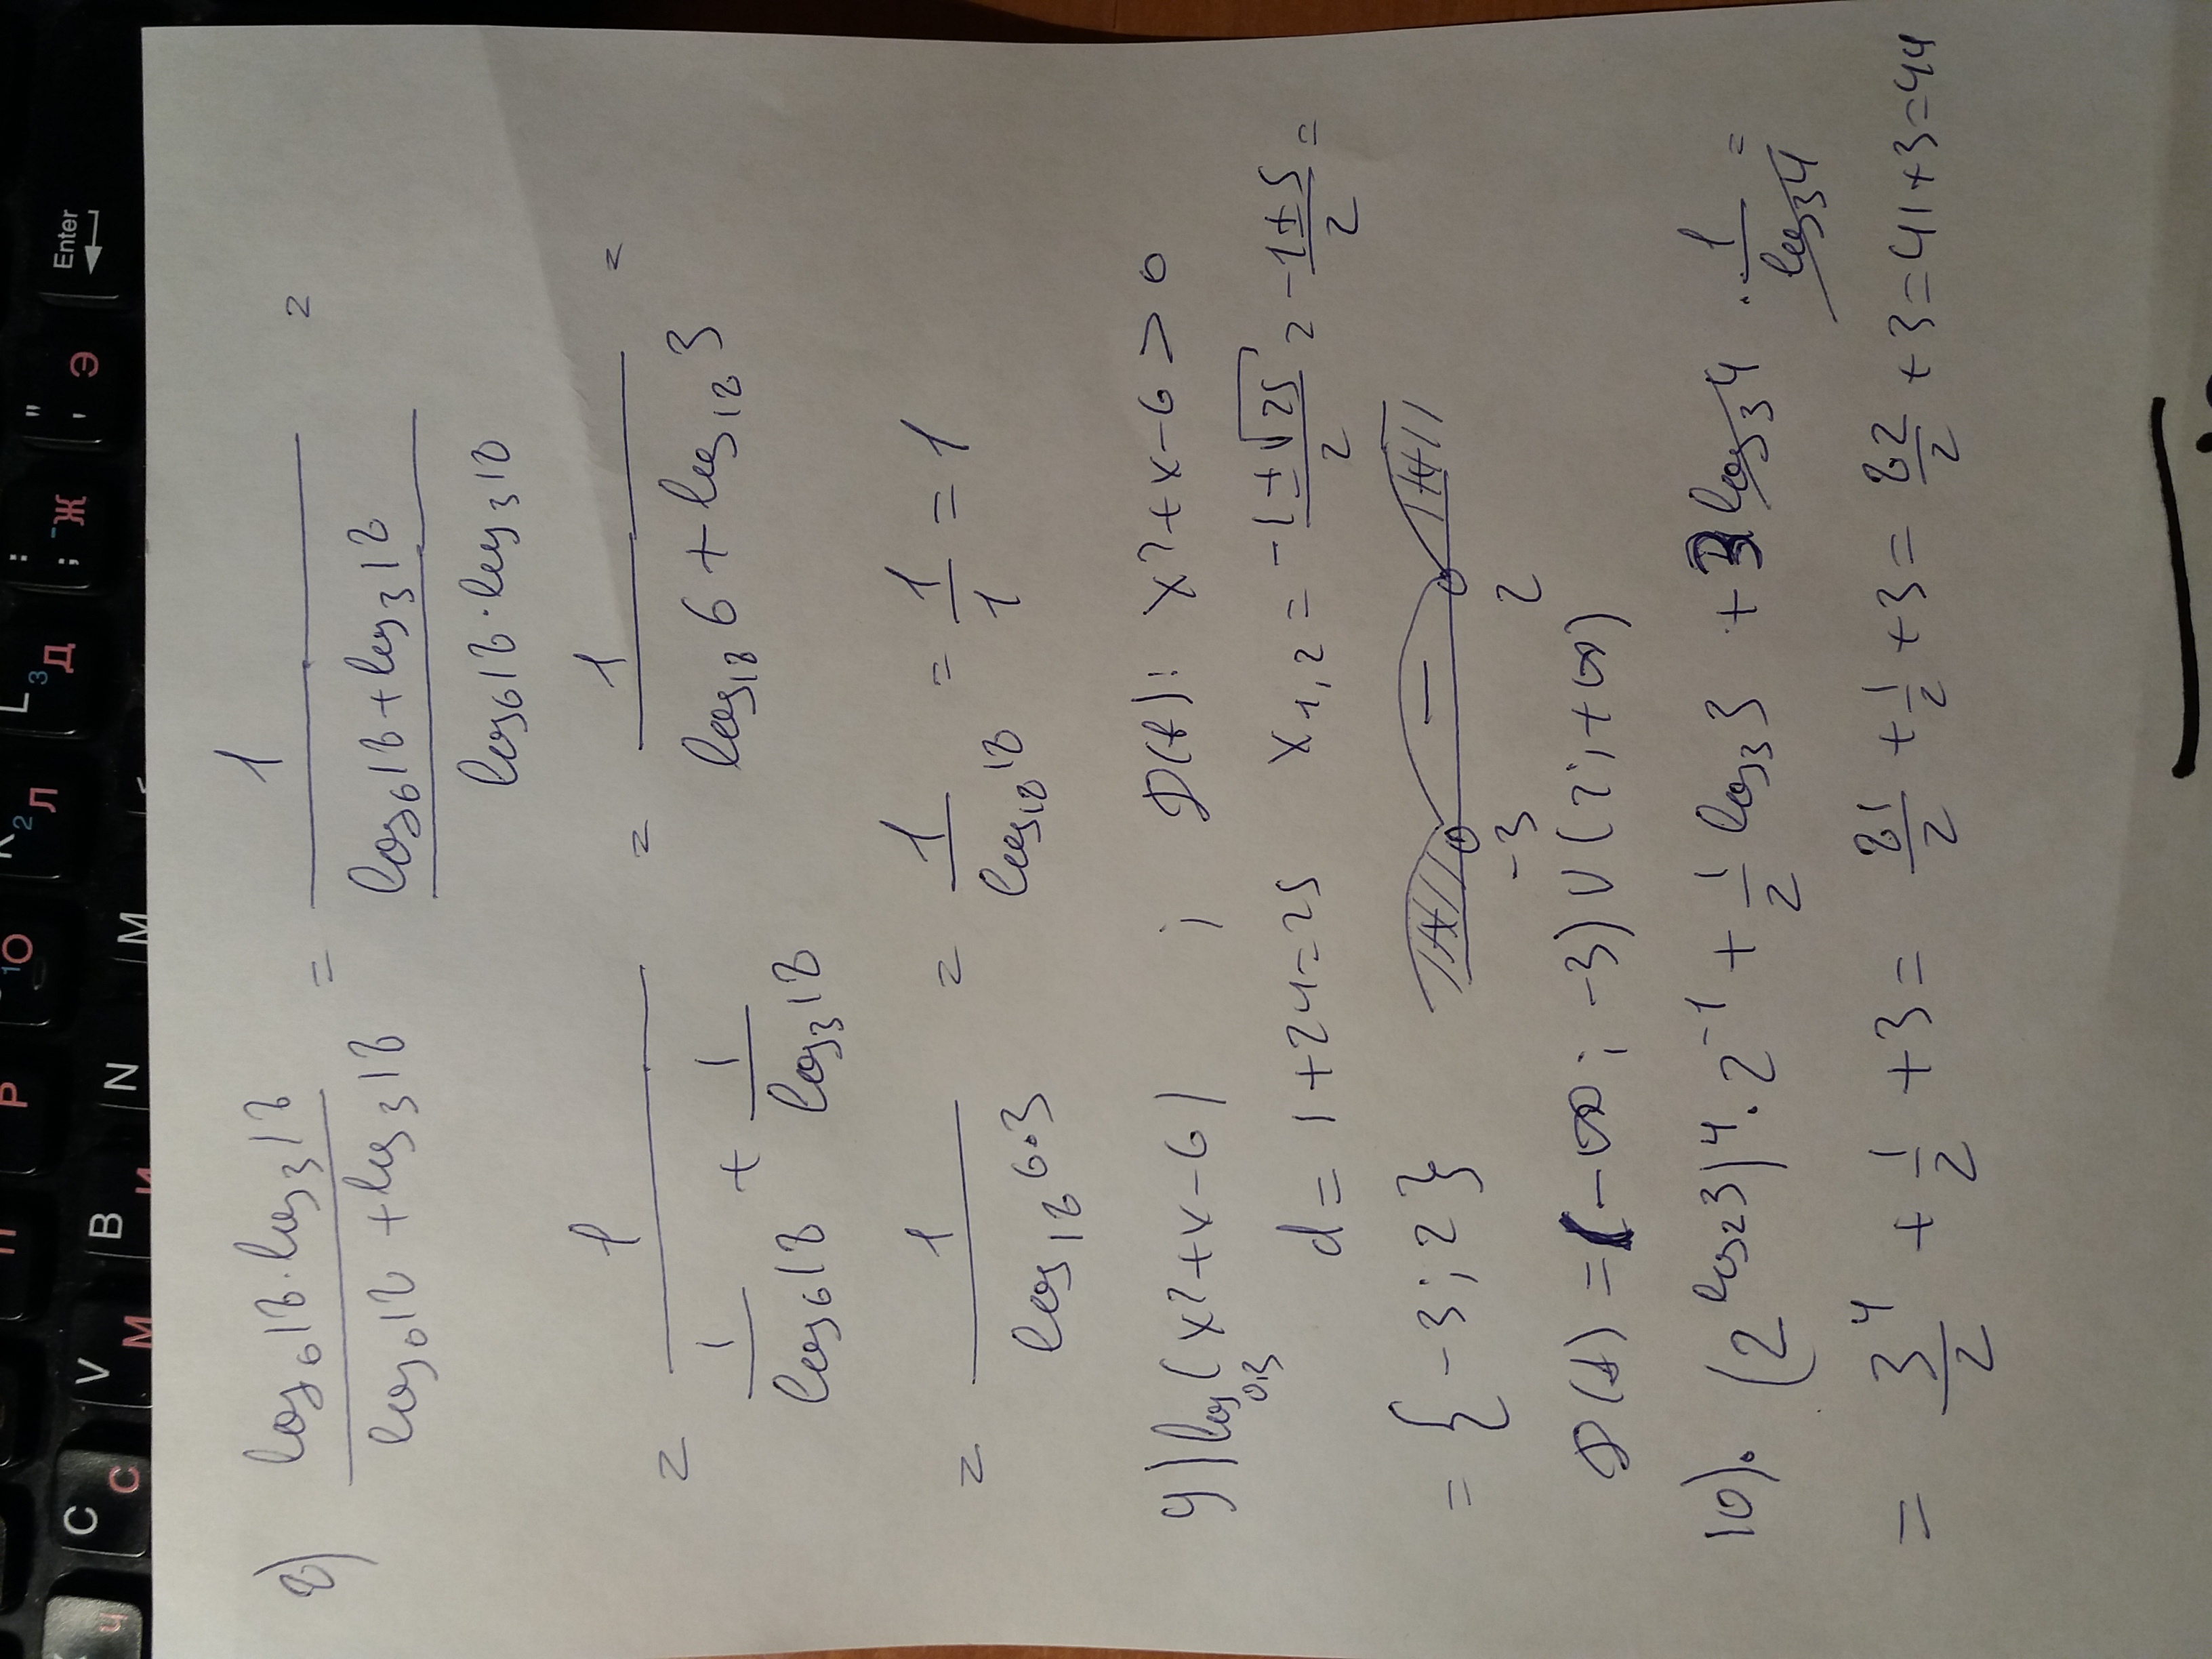 8) (log₆18·log₃18)/(log₆18+log₃18) = 1/((log₆18+log₃18)/(log₆18·log₃18)) =
= 1/(1/log₆18 + 1/log₃18) = 1/(log₁₈6+log₁₈3) =
= 1/log₁₈6·3 = 1/log₁₈18 = 1/1 = 1
9) log₀,₃(x²+x-6) ; D(f): x²+x-6>0
d=1+24=25 x₁,₂ = (-1±√25)/2 = (-1±5)/2 =
= {-3;2} -3 - 2
D(f) = (-∞;-3)∪(2;+∞)
10). (2^(log₂3))⁴·2⁻¹ + 1/2 log₃3 + 3log₃4 · 1/log₃4 =
= 3⁴/2 + 1/2 + 3 = 81/2 + 1/2 + 3 = 82/2 + 3 = 41+3 = 44
Enter
Э
Ж
; :
L Д 3
K Л 2
О 1
Р
M
N
B И
V М
C С
Ч
" '